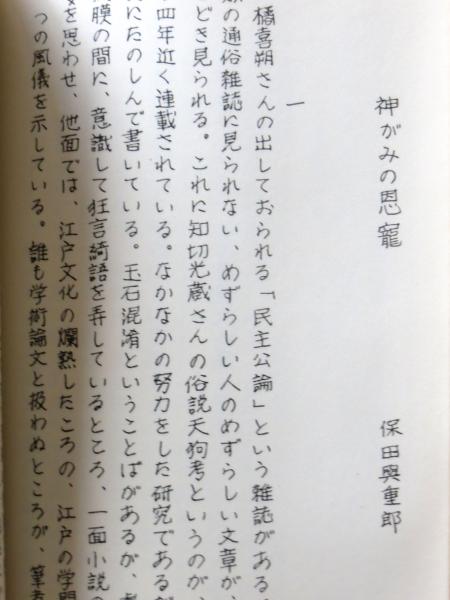 神がみの恩寵
保田與重郎
一
橋喜朔さんの出しておられる「民主公論」という雑誌がある
の通俗雑誌に見られない、めずらしい人のめずらしい文章が、
どき見られる。これに知切光蔵さんの俗説天狗考というのが、
四年近く連載されている。なかなかの努力をした研究であるが
にたのしんで書いている。玉石混淆ということばがあるが、
膜の間に、意識して狂言綺語を弄しているところ、一面小説の
を思わせ、他面では、江戸文化の爛熟したころの、江戸の学問
つの風儀を示している。誰も学術論文と扱わぬところが、筆者